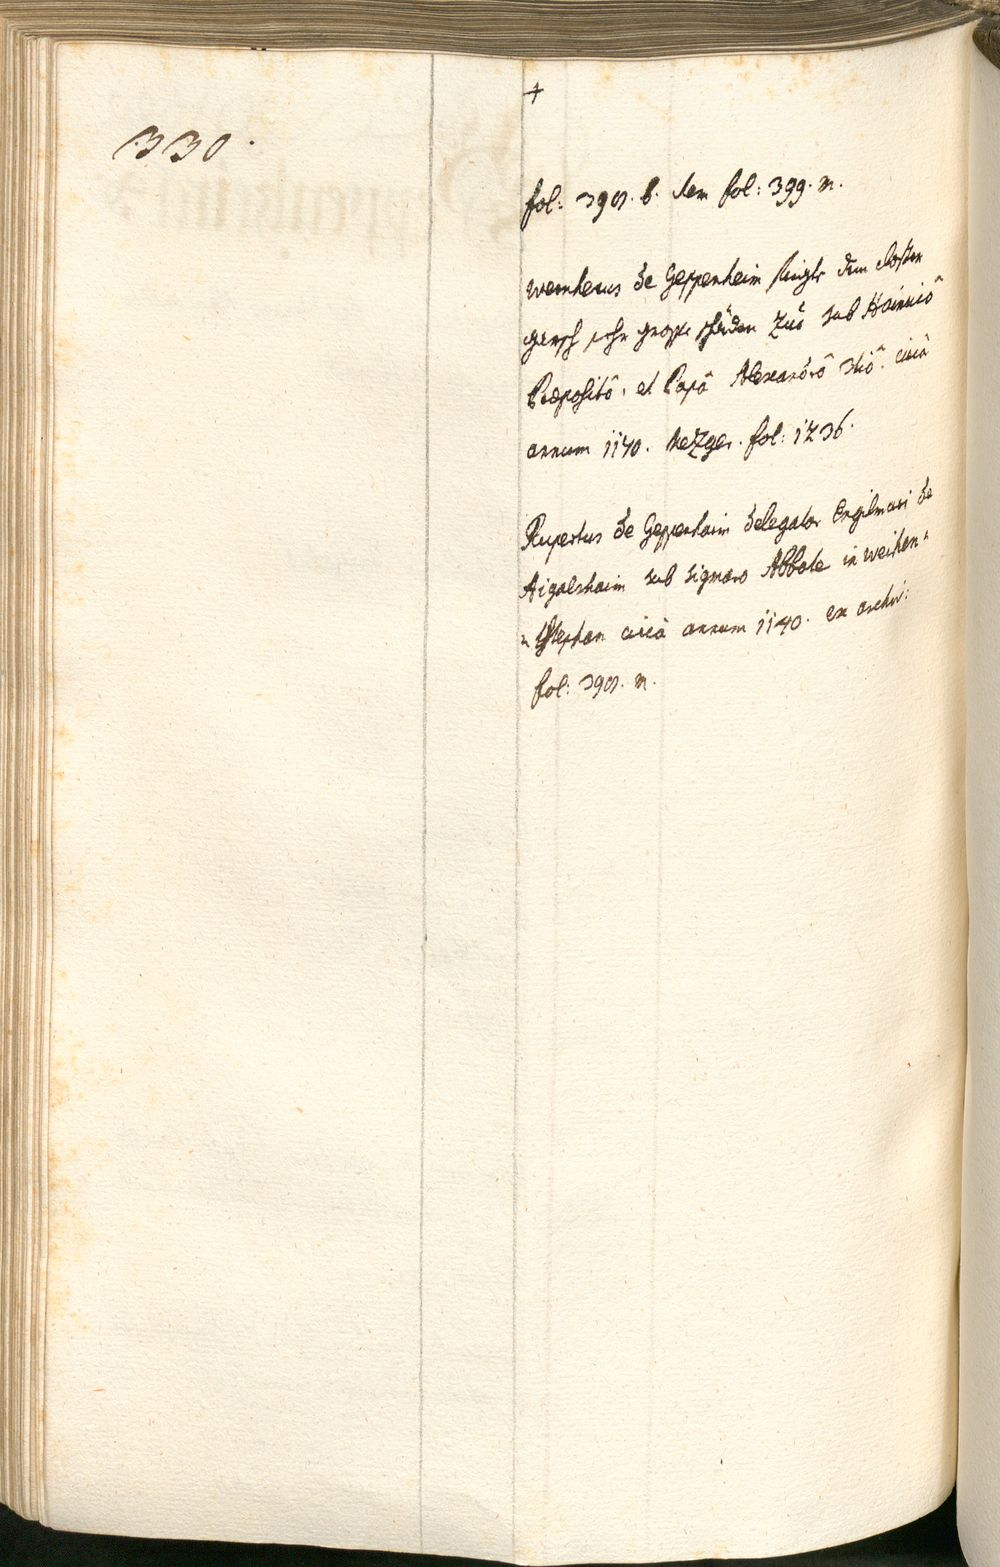 330.
fol: 390. b. Item fol: 399. n.
wernherus de Geppenheim fuegte dem closter
garsch sehr grosse schäden Zue sub Hainricô
Præpositô, et Papâ Alexandrô 3tiô. circà
annum 1140. Mezger. fol: 1236.
Rupertus de Geppenhaim delegator Engilmari de
Aigalshaim sub Sigmaro Abbate in weihen=
=Stephan circà annum 1140. ex archiv:
fol: 390. n.